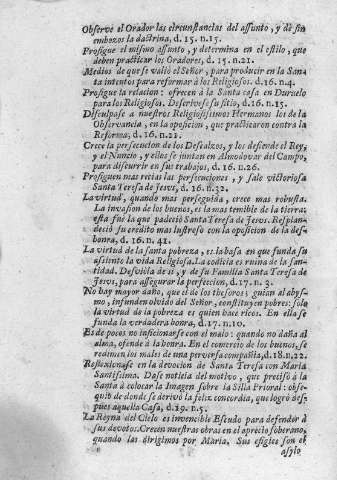 Observe el Orador las circunstancias del assunto, y dè sin
embozos la doctrina, d. 15. n. 15.
Prosigue el mismo assunto, y determina en el estilo, que
deben practicar los Oradores, d. 15. n. 21.
Medios de que se valiò el Señor, para producir en la San-
ta intentos para reformar à los Religiosos. d. 16. n. 4.
Prosigue la relacion: ofrecen à la Santa casa en Durvelo
para los Religiosos. Descrivese su sitio, d. 16. n. 15.
Disculpase à nuestros Religiosissimos Hermanos los de la
Observancia, en la oposicion, que practicaron contra la
Reforma, d. 16. n. 22.
Crece la persecucion de los Descalzos, y los defiende el Rey,
y el Nuncio, y ellos se juntan en Almodovar del Campo,
para discurrir en sus trabajos, d. 16. n. 26.
Prosiguen mas recias las persecuciones, y sale victoriosa
Santa Teresa de Jesus, d. 16. n. 32.
La virtud, quando mas perseguida, crece mas robusta.
La invasion de los buenos, es la mas temible de la tierra:
esta fuè la que padeciò Santa Teresa de Jesus. Resplan-
deciò su credito mas lustroso con la oposicion de la des-
honra, d. 16. n. 41.
La virtud de la santa pobreza, es la basa en que funda su
assiento la vida Religiosa. La codicia es ruina de la san-
tidad. Desviòla de sì, y de su Familia Santa Teresa de
Jesus, para assegurar la perfeccion, d. 17. n. 3.
No hay mayor daño, que el de los thesoros; guian al abys-
mo, infunden olvido del Señor, constituyen pobres: solo
la virtud de la pobreza es quien hace ricos. En ella se
funda la verdadera honra, d. 17. n. 10.
Es de pocos no inficionarse con el malo: quando no daña al
alma, ofende à la honra. En el comercio de los buenos, se
redimen los males de una perversa compañia, d. 18. n. 22.
Reflexionase en la devocion de Santa Teresa con Maria
Santissima. Dase noticia del motivo, que precisò à la
Santa à colocar la Imagen sobre la Silla Prioral: obse-
quio de donde se derivò la feliz concordia, que logrò des-
pues aquella Casa, d. 19. n. 5.
La Reyna del Cielo es invencible Escudo para defender à
sus devotos. Crecen nuestras obras en el aprecio soberano,
quando las dirigimos por Maria. Sus efigies son el
asylo